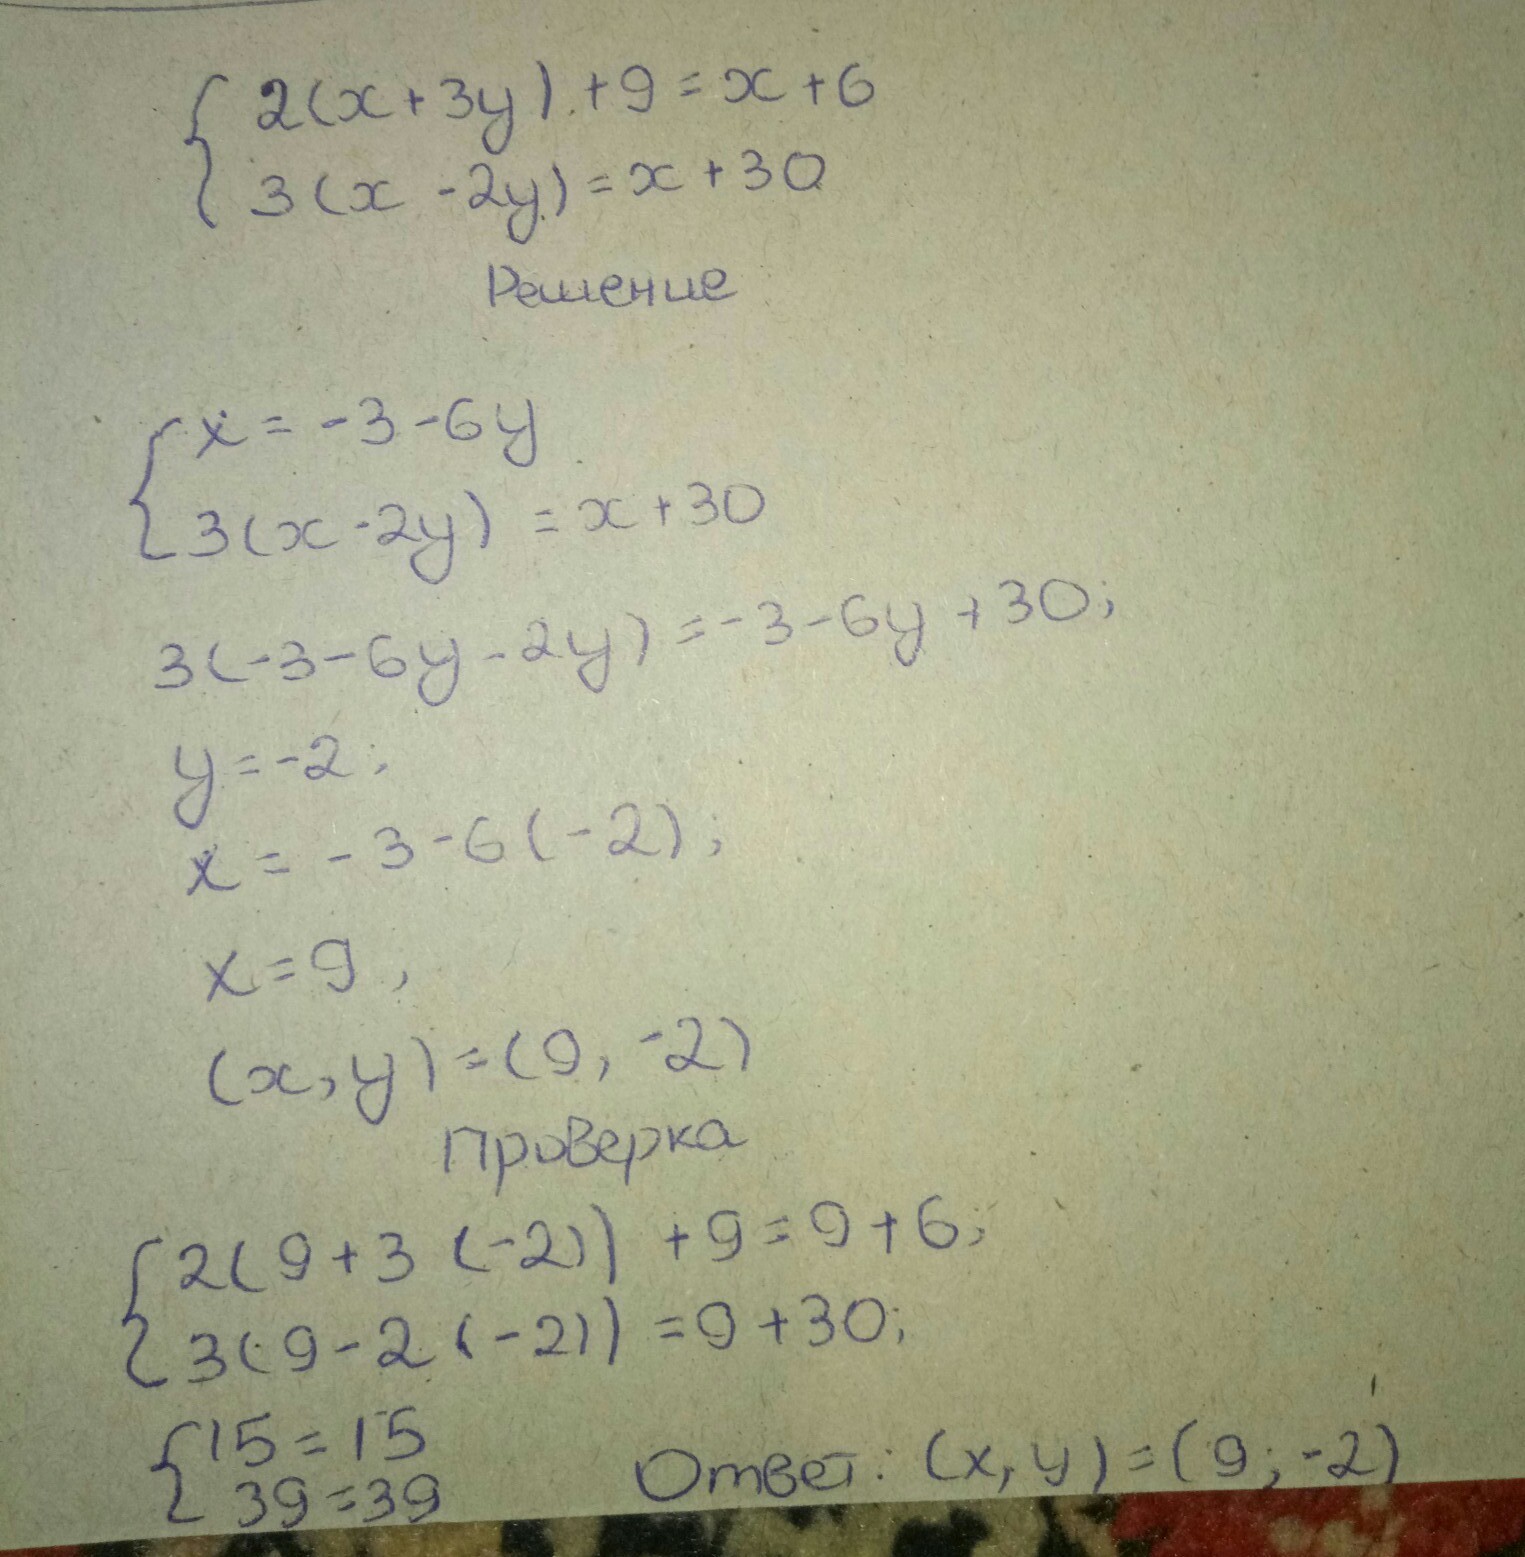 2(x+3y)+9=x+6
3(x-2y)=x+30
Решение
x=-3-6y
3(x-2y)=x+30
3(-3-6y-2y)=-3-6y+30;
y=-2;
x=-3-6(-2);
x=9,
(x,y)=(9,-2)
Проверка
2(9+3(-2))+9=9+6;
3(9-2(-2))=9+30;
15=15
39=39
Ответ: (x,y)=(9;-2)